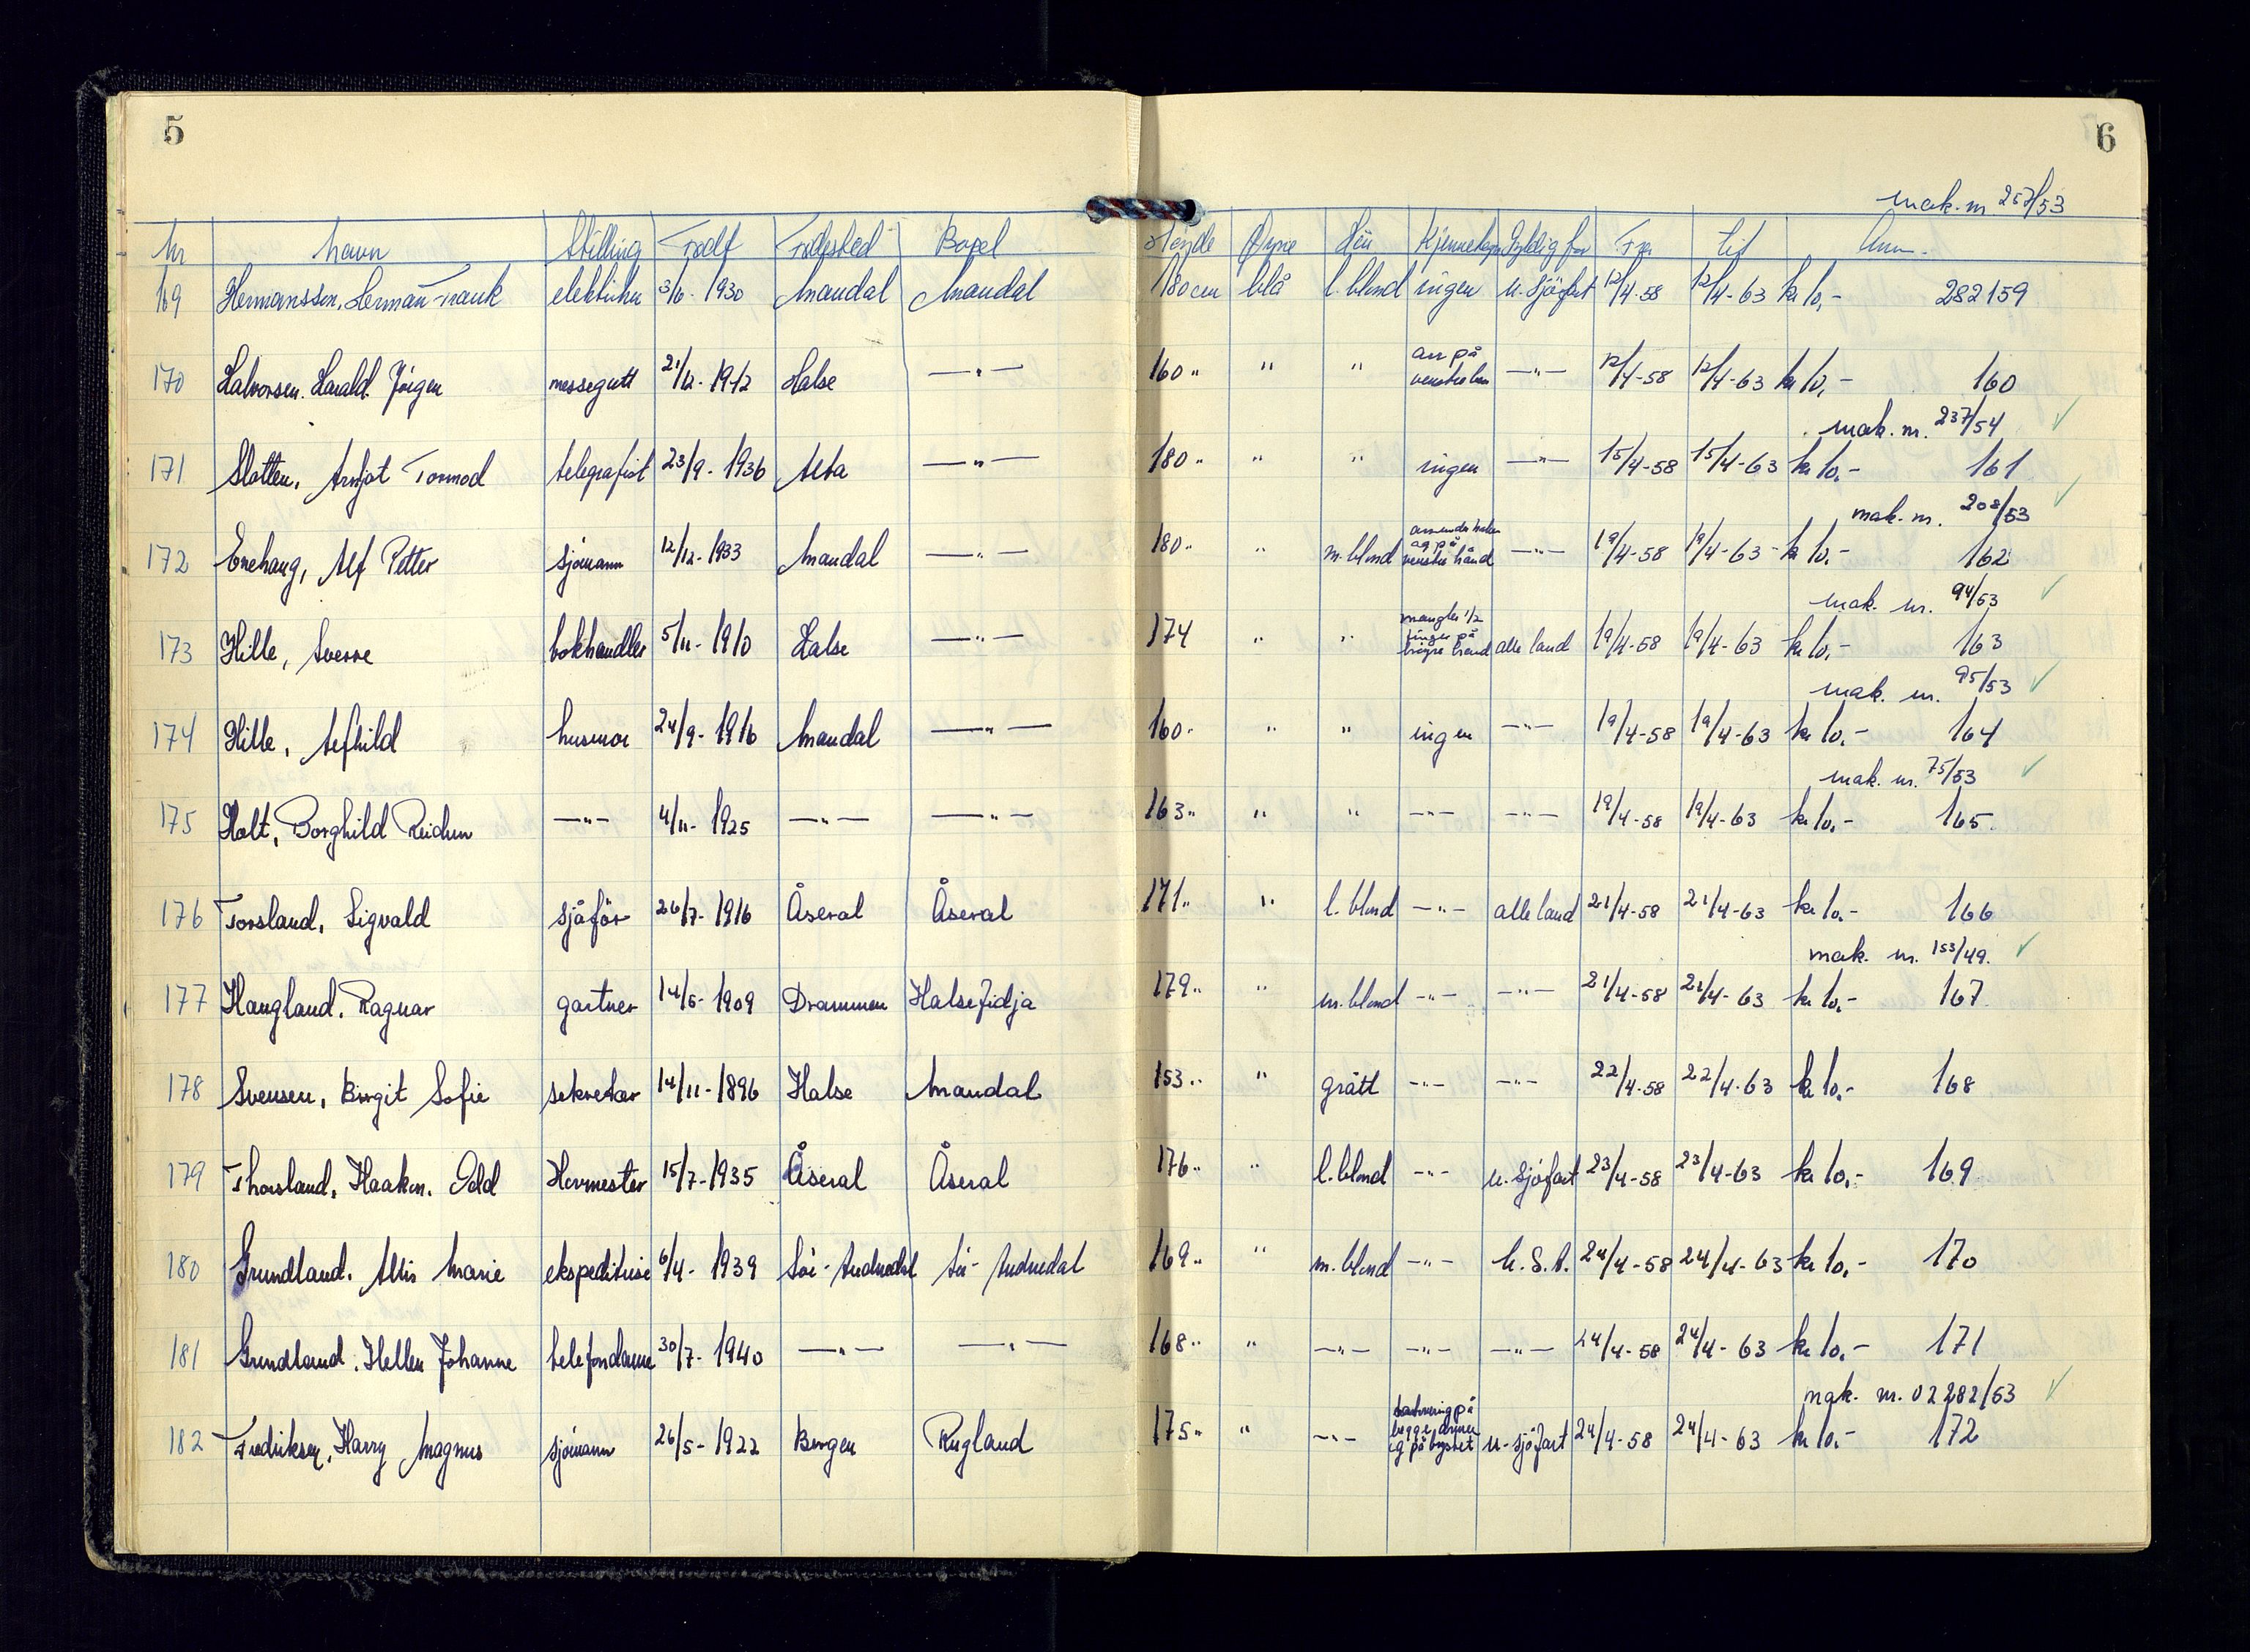 5
6
mak. nr 257/53
Nr Navn Stilling Født Fødested Bopel Höyde Øyne Hår Kjennetegn Gyldig for Fra Til Anm.
169 Hermanssen, Herman Frank elektriker 3/6-1930 Mandal Mandal 180 cm blå l. blond ingen u. sjöfart 12/4-58 12/4-63 kr 10,- 282159
170 Halvorsen. Harald Jörgen messegutt 21/12-1942 Halse —"— 160 " " " arr på venstre —"— 12/4-58 12/4-63 kr 10,- 160
mak. nr. 237/54 ✓
171 Slotten, Arnfjot Tormod telegrafist 23/9-1936 Alta —"— 180 " " " ingen —"— 15/4-58 15/4-63 kr 10,- 161
mak. nr. 208/53 ✓
172 Enehaug, Alf Petter sjömann 12/12-1933 Mandal —"— 180 " " m. blond arr under haken og på venstre hånd —"— 19/4-58 19/4-63 kr 10,- 162
mak. nr. 94/53 ✓
173 Hille, Sverre bokhandler 5/11-1910 Halse —"— 174 " " mangler 1/2 finger på höyre hånd alle land 19/4-58 19/4-63 kr 10,- 163
mak. nr. 95/53 ✓
174 Hille, Alfhild husmor 24/9-1916 Mandal —"— 160 " " " ingen —"— 19/4-58 19/4-63 kr 10,- 164
mak. nr. 75/53 ✓
175 Holt, Borghild Reidun —"— 4/11-1925 —"— —"— 163 " " " —"— —"— 19/4-58 19/4-63 kr 10,- 165
176 Torsland, Sigvald sjåför 26/7-1916 Åseral Åseral 171 " " l. blond —"— alle land 21/4-58 21/4-63 kr 10,- 166
mak. nr. 153/49. ✓
177 Haugland, Ragnar gartner 14/6-1909 Drammen Halse Fidja 179 " " m. blond —"— —"— 21/4-58 21/4-63 kr 10,- 167
178 Svensen, Birgit Sofie sekretær 14/11-1896 Halse Mandal 153 " " grått —"— —"— 22/4-58 22/4-63 kr 10,- 168
179 Thorsland, Haakon. Odd Hovmester 15/7-1935 Åseral Åseral 176 " " l. blond —"— u. sjöfart 23/4-58 23/4-63 kr 10,- 169
180 Grundland, Allis Marie ekspeditrise 6/4-1939 Sör-Audnedal Sör-Audnedal 169 " " m. blond —"— U.S.A. 24/4-58 24/4-63 kr 10,- 170
181 Grundland, Hellen Johanne telefondame 30/7-1940 —"— —"— 168 " " —"— —"— —"— 24/4-58 24/4-63 kr 10,- 171
mak. nr. 02282/53 ✓
182 Fredriksen, Harry Magnus sjömann 26/5-1922 Bergen Rugland 175 " " —"— tatovering på begge armer og på brystet u-sjöfart 24/4-58 24/4-63 kr 10,- 172